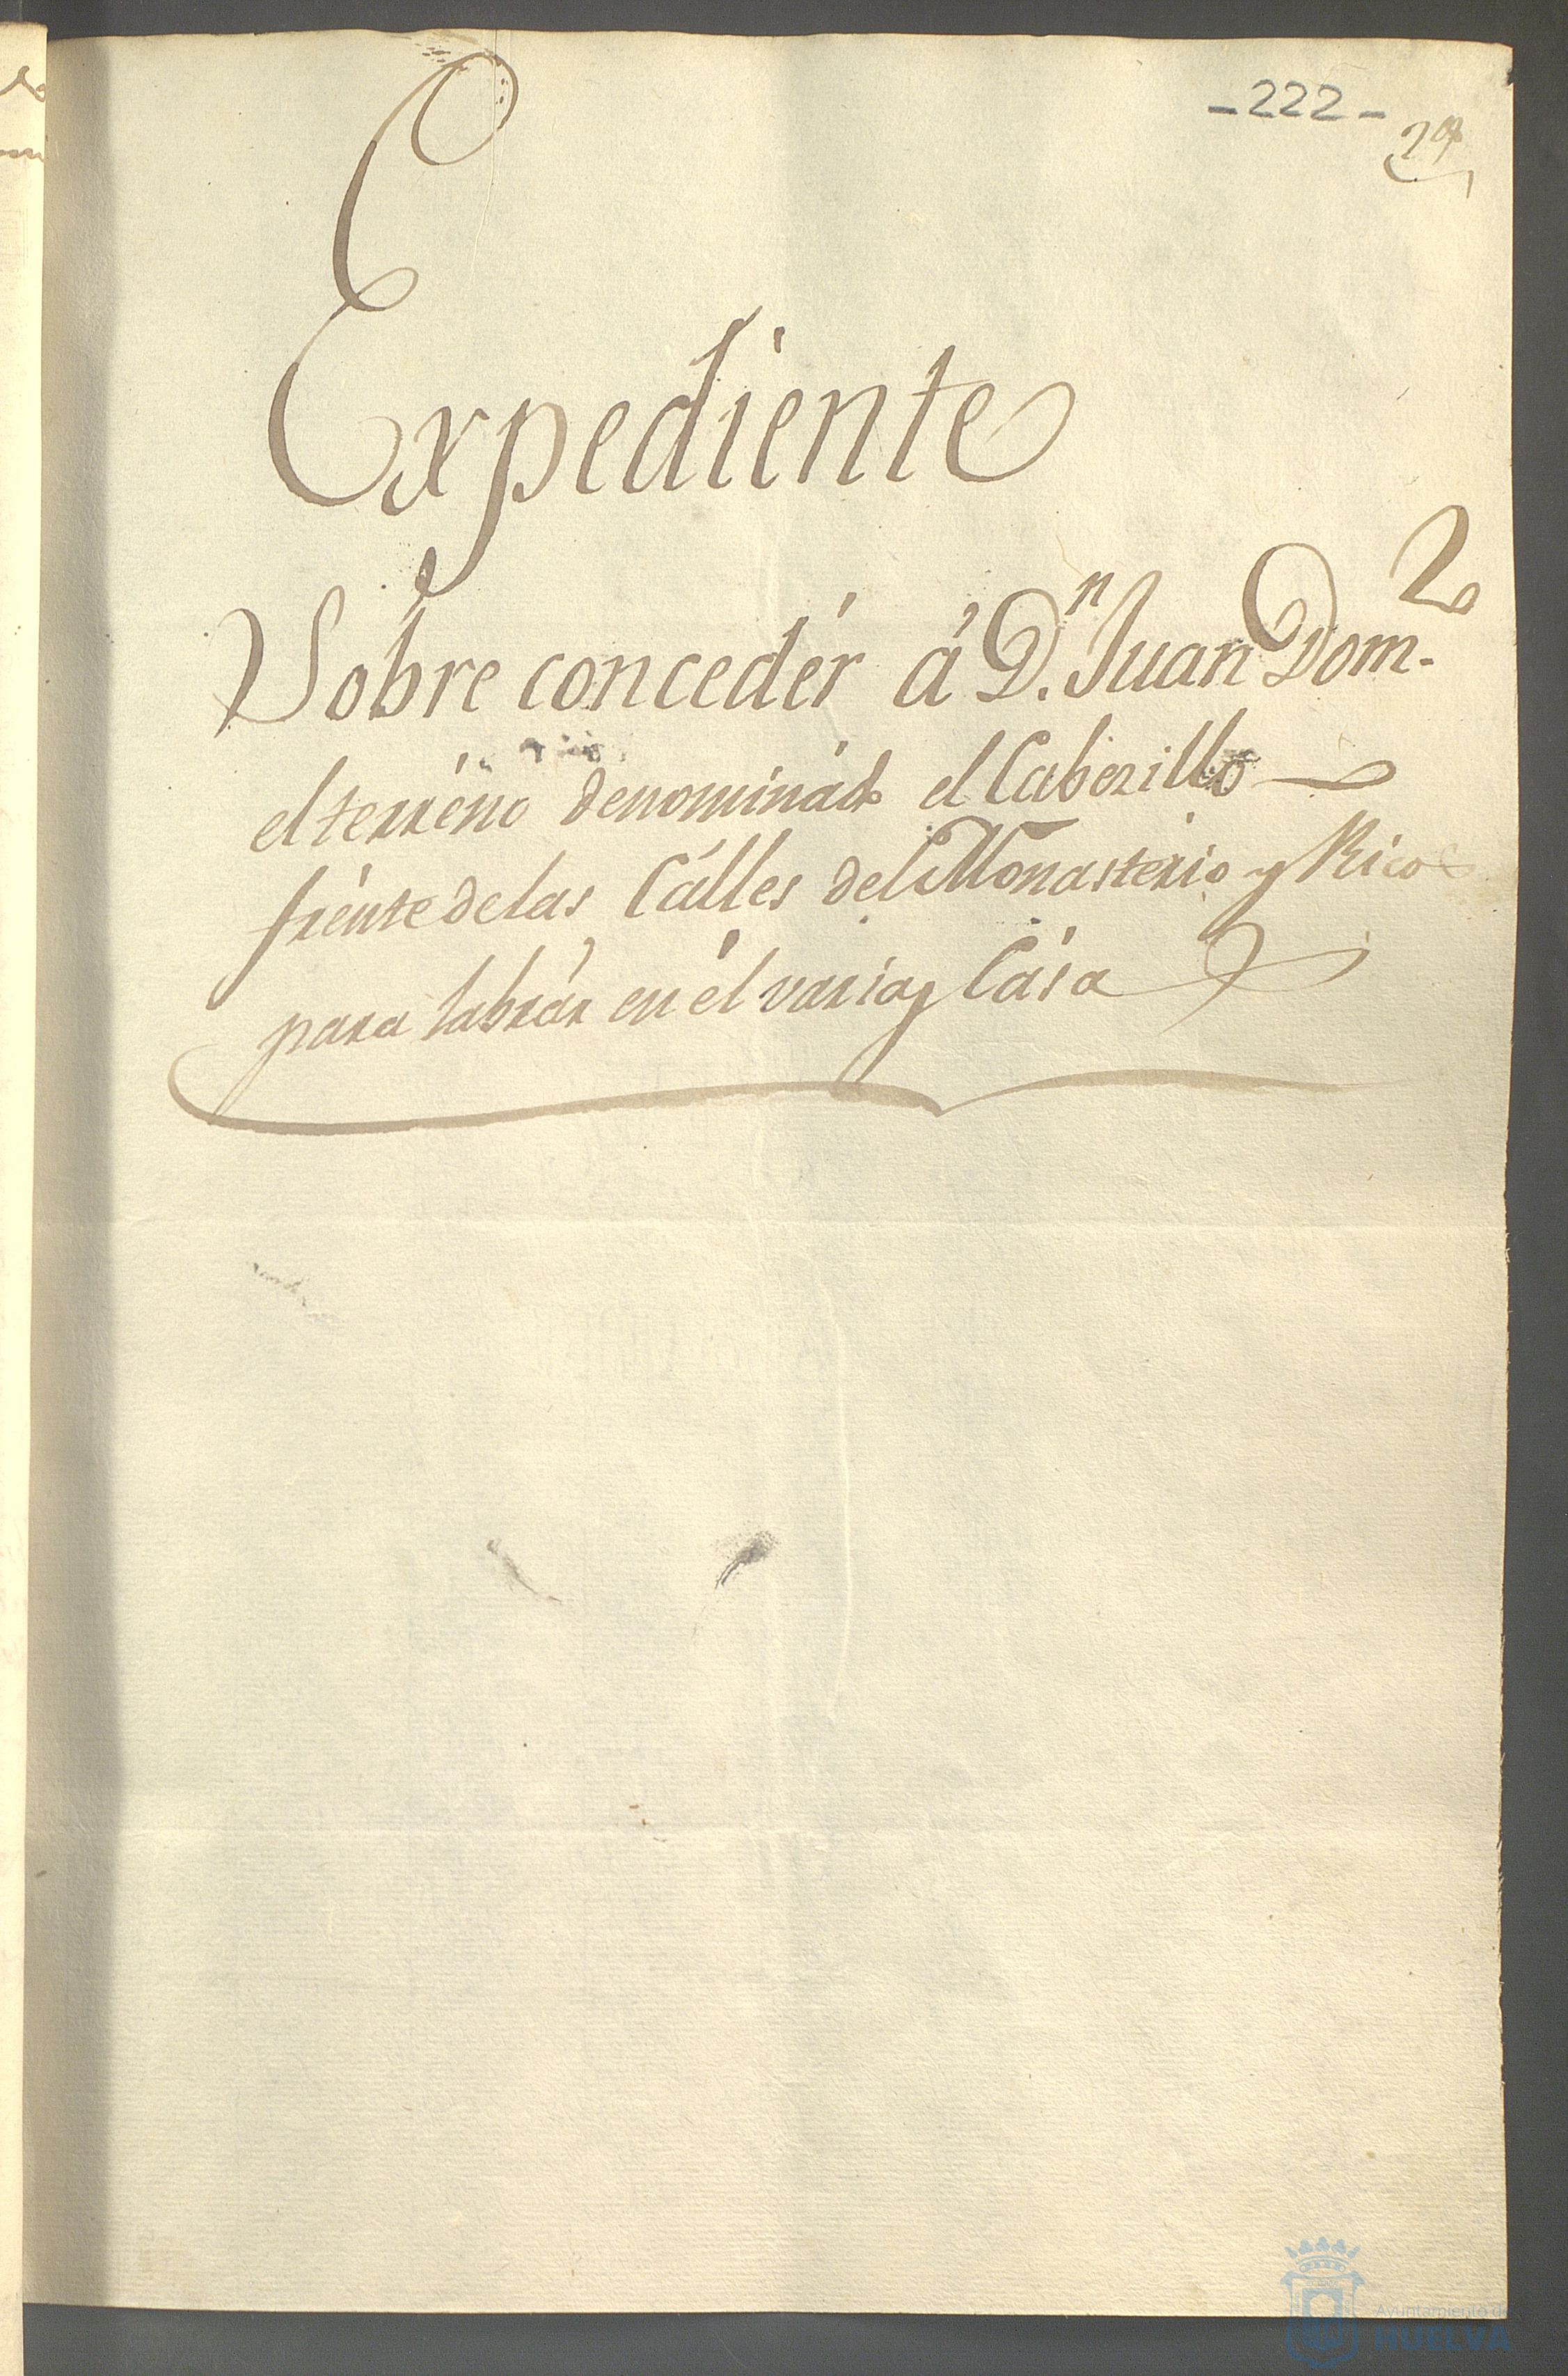 -222-
Expediente
Sobre concedér á D.n Juan Dom.z
el terréno denominádo el Cabezillo
frénte de las Cálles del Monasterio y Rico
para labrár en él varias Cása
Ayuntamiento de
HUELVA